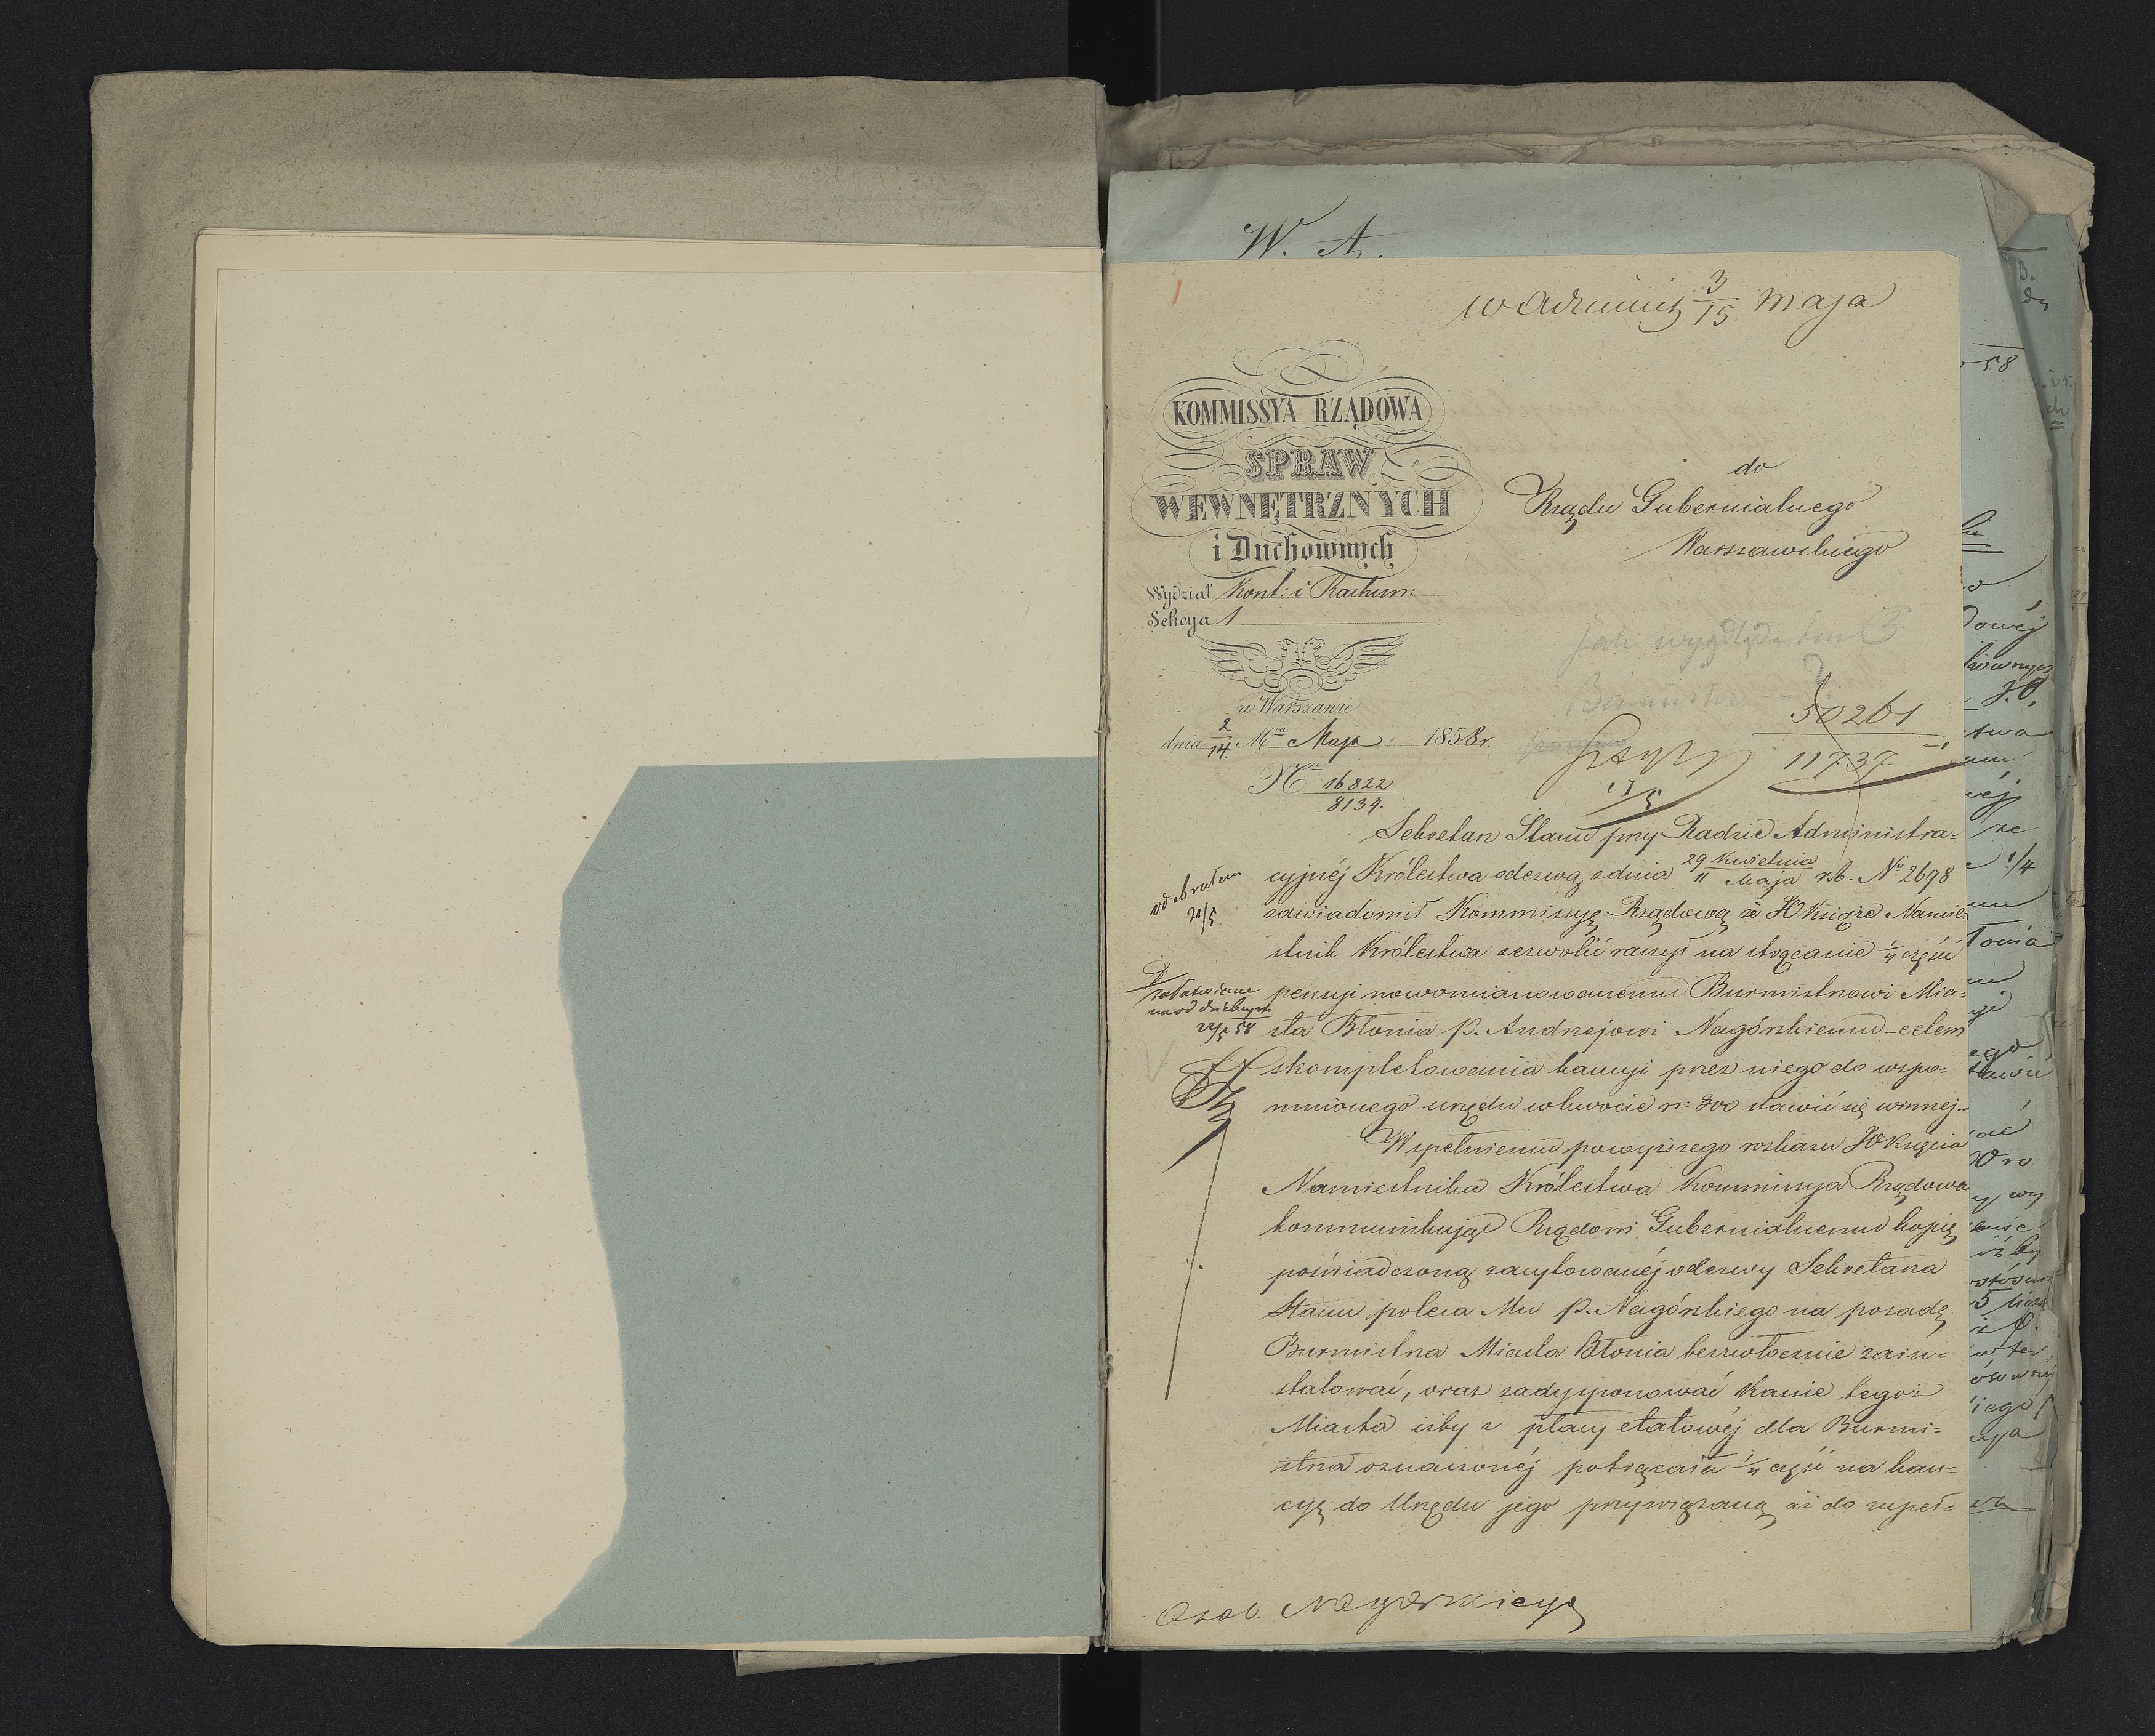 W. A.
1
w Administ 3/15 maja
KOMMISSYA RZĄDOWA
SPRAW
WEWNĘTRZNYCH
i Duchownych
Wydział Kont: i Rachun:
Sekcya 1
w Warszawie
dnia 2/14 Mca Maja 1858 r.
No 16822
8134.
do
Rządu Gubernialnego
Warszawskiego
Jak wygląda ten
50261
11737
17/5
Sekretarz Stanu przy Radzie Administra=
cyjnéj Królestwa odezwą z dnia 29 Kwietnia / 11 Maja r.b. No 2698
zawiadomił Kommissyę Rządową że JO Książe Namie=
stnik Królestwa zezwolić raczył na strącanie 1/4 części
pensyi nowomianowanemu Burmistrzowi Mia=
sta Błonia P. Andrzejowi Nagórskiemu – celem
skompletowania kaucyi przez niego do wspo=
mnionego urzędu w kwocie rs: 300 stawić się winnej.–
W spełnieniu powyższego rozkazu JO Księcia
Namiestnika Królestwa Kommissya Rządowa
kommunikując Rządowi Gubernialnemu kopię
poświadczoną zacytowanéj odezwy Sekretarza
Stanu poleca Mu P. Nagórskiego na posadę
Burmistrza Miasta Błonia bezzwłocznie zain=
stalować, oraz zadysponować Kassie tegoż
Miasta iżby z płacy etatowéj dla Burmi=
strza oznaczonéj potrącała 1/4 część na kau=
cyę do Urzędu jego przywiązaną aż do zupeł=
odebrałem
21/5
załatwione
na oddzielnym
22/5 58
Osob. Nagórskiego
58